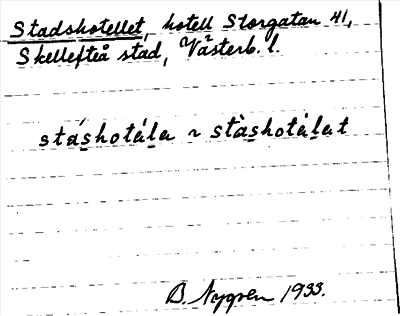 Stadshotellet, hotell Storgatan 41,
Skellefteå stad, Västerb. l.
stásho̱tála ~ stàshotálat
B. Nygren 1933.